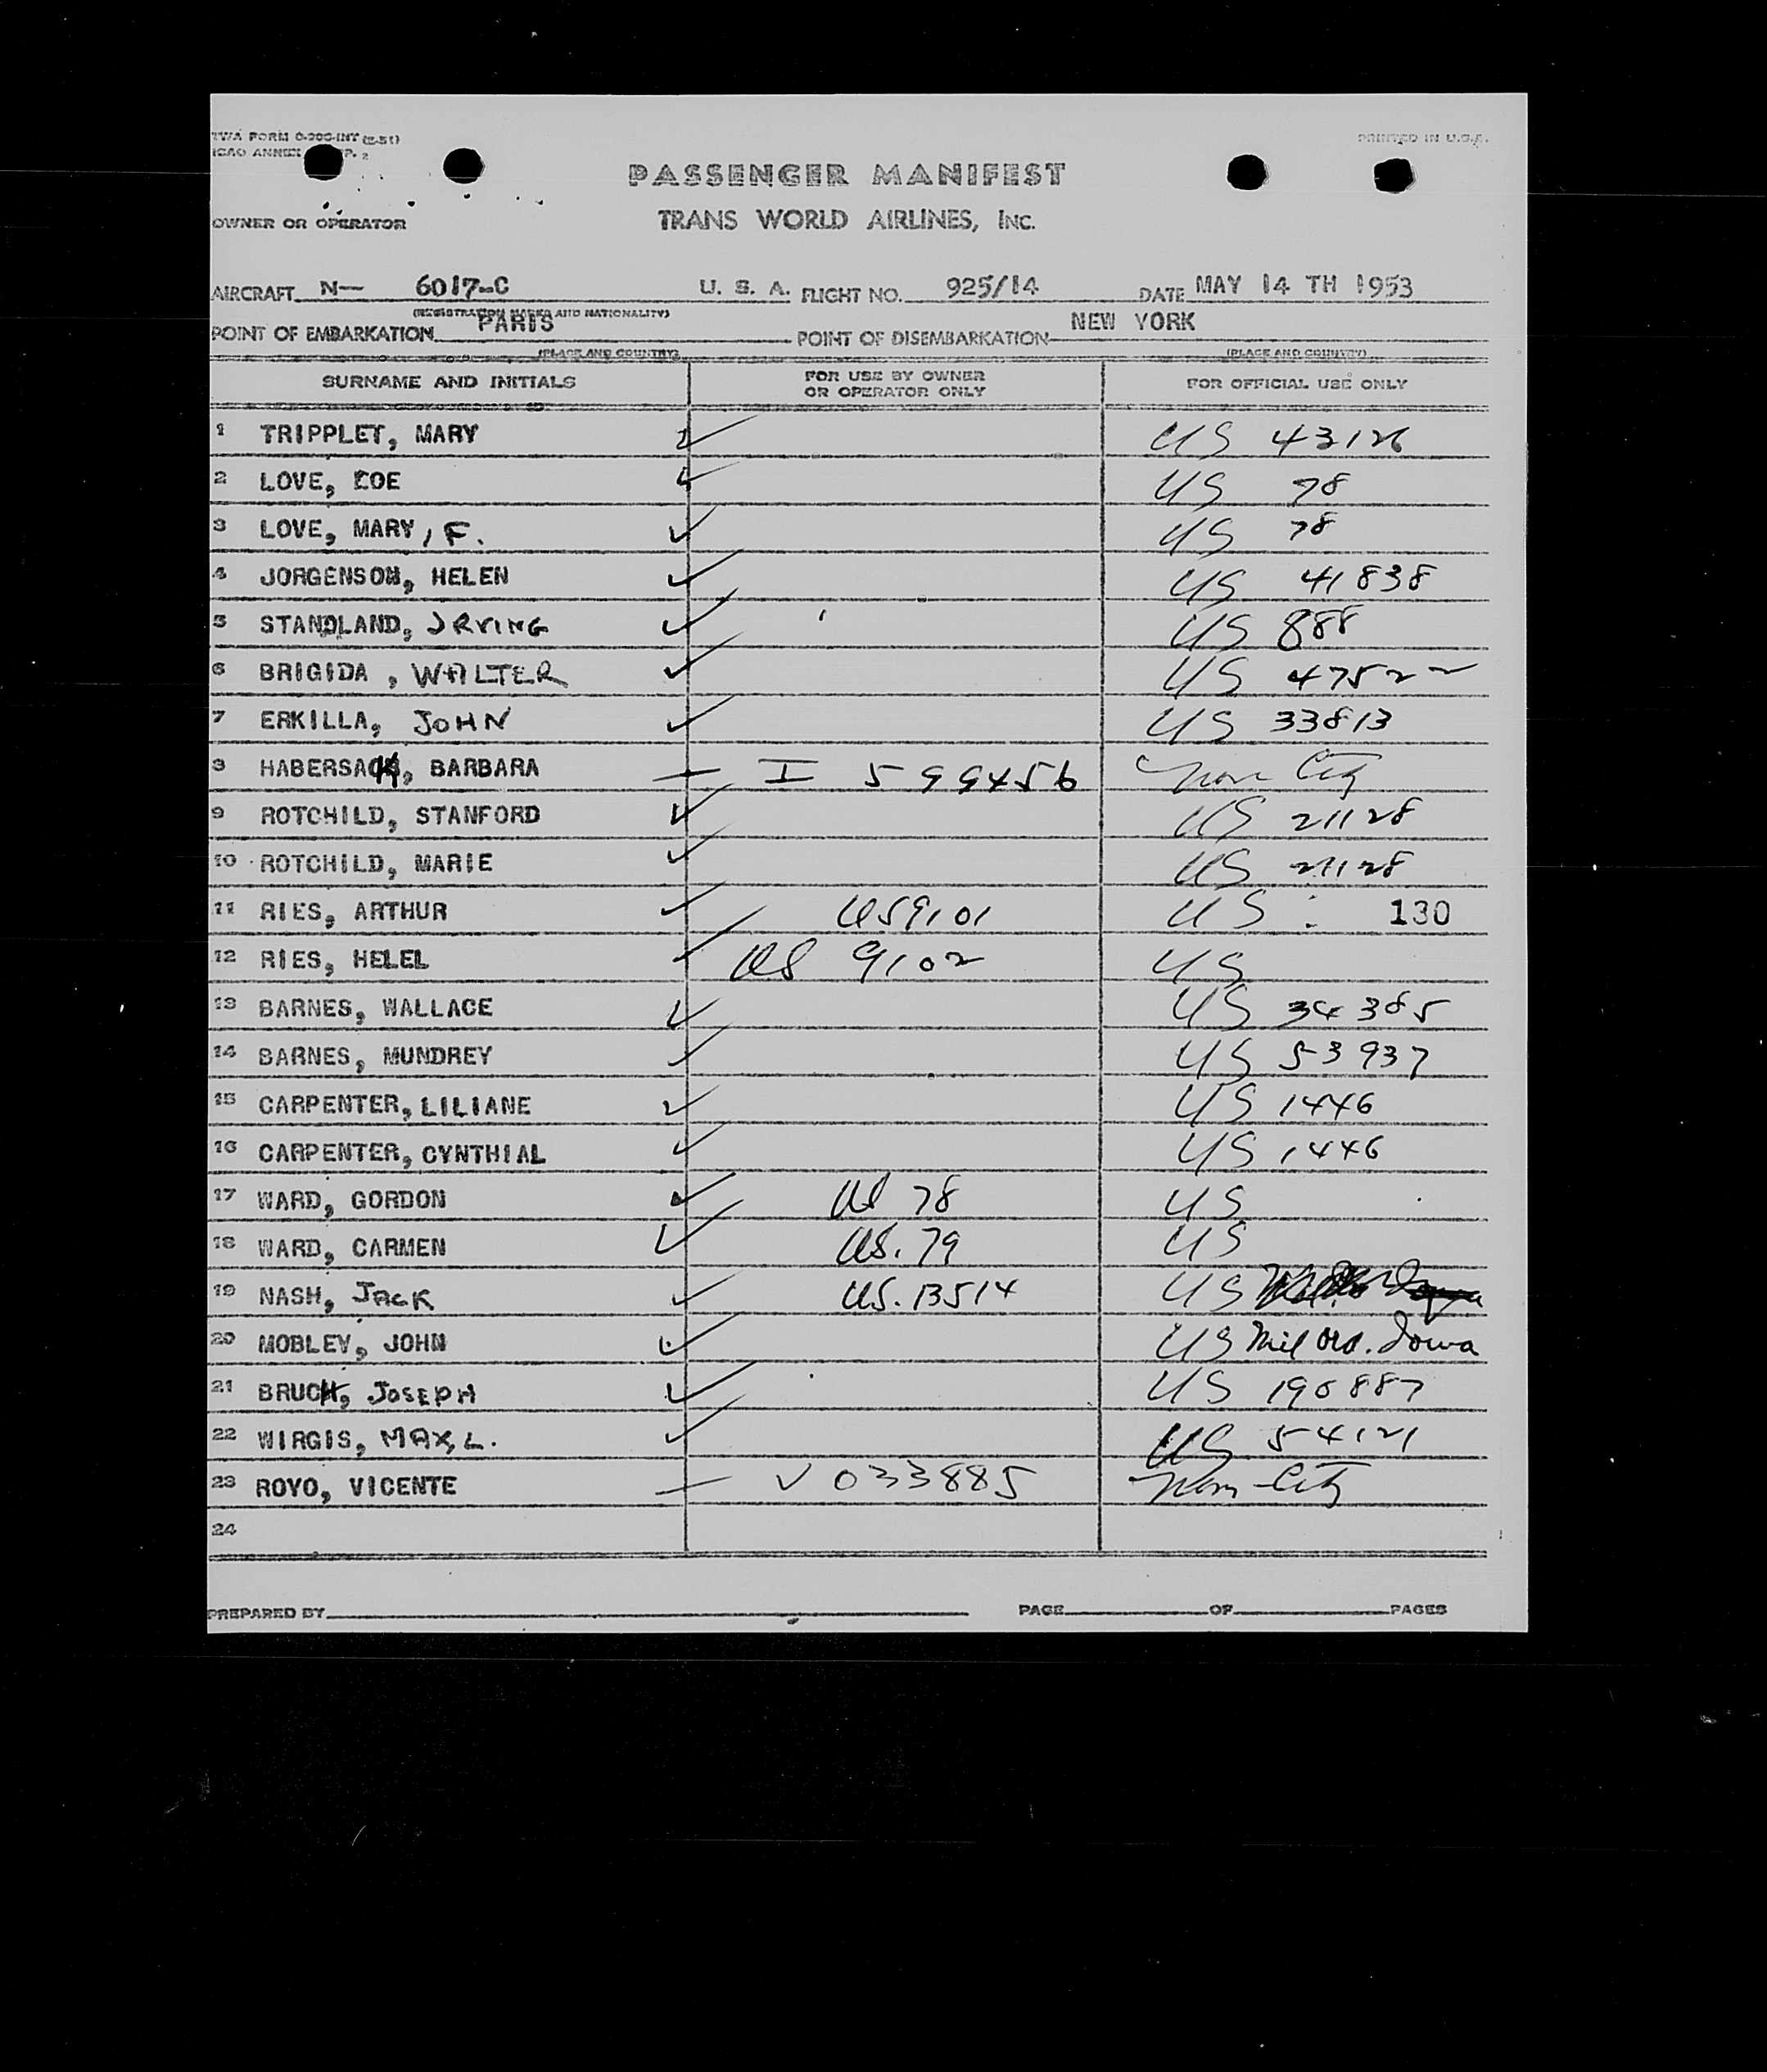 TWA FORM O-300-INT (2-51)
PRINTED IN U.S.A.
ICAO ANNEX P. 2
PASSENGER MANIFEST
TRANS WORLD AIRLINES, INC.
OWNER OR OPERATOR
AIRCRAFT N— 6017-C U. S. A. FLIGHT NO. 925/14 DATE MAY 14 TH 1953
(REGISTRATION MARKS AND NATIONALITY)
POINT OF EMBARKATION PARIS POINT OF DISEMBARKATION NEW YORK
(PLACE AND COUNTRY) (PLACE AND COUNTRY)
SURNAME AND INITIALS FOR USE BY OWNER OR OPERATOR ONLY FOR OFFICIAL USE ONLY
1 TRIPPLET, MARY US 43126
2 LOVE, ZOE US 78
3 LOVE, MARY, F. US 78
4 JORGENSON, HELEN US 41838
5 STANDLAND, IRVING US 888
6 BRIGIDA , WALTER US 47522
7 ERKILLA, JOHN US 33813
8 HABERSACK, BARBARA — I 599456 Non Citz
9 ROTCHILD, STANFORD US 21128
10 ROTCHILD, MARIE US 21128
11 RIES, ARTHUR US9101 US : 130
12 RIES, HELEL US 9102 US
13 BARNES, WALLACE US 34385
14 BARNES, MUNDREY US 53937
15 CARPENTER, LILIANE US 1446
16 CARPENTER, CYNTHIAL US 1446
17 WARD, GORDON US 78 US
18 WARD, CARMEN US. 79 US
19 NASH, JACK US. 13514 US
20 MOBLEY, JOHN US Mil Ord. Iowa
21 BRUCH, JOSEPH US 190887
22 WIRGIS, MAX, L. US 54121
23 ROYO, VICENTE — V 033885 Non-Citz
24
PREPARED BY PAGE OF PAGES